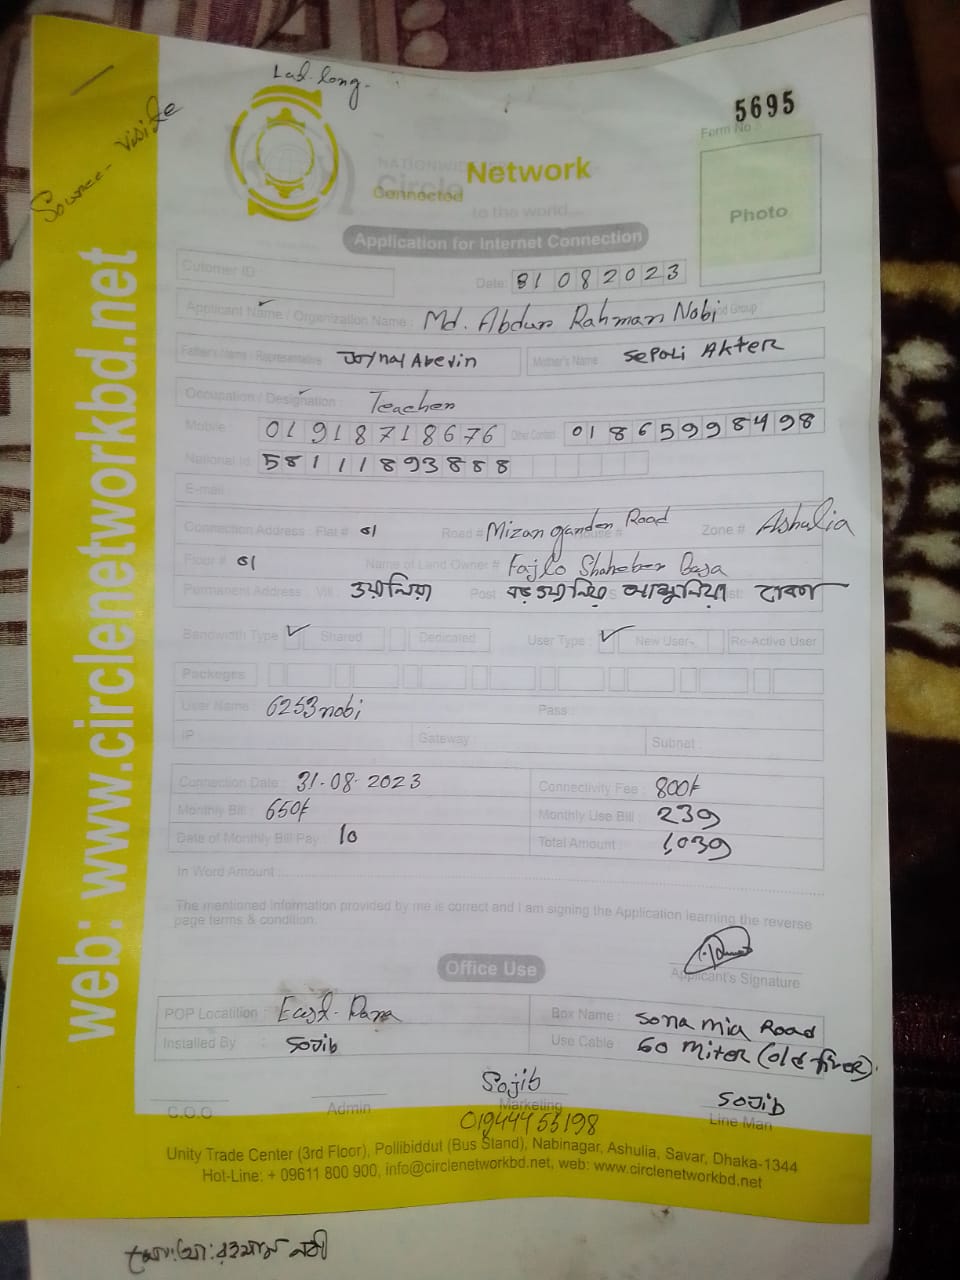 Lad. long.
Source - Viside
5695
Form No :
NATIONWIDE
Circle Network
Connected
to the world...
Photo
Application for Internet Connection
Cutomer ID :
Date: 31082023
Applicant Name / Organization Name : Md. Abdur Rahman Nobi Group
Father's Name / Representative : Joynal Abevin Mother's Name : Sepali Akter
Occupation / Designation : Teacher
Mobile : 01918718676 Other Contact : 01865998498
National Id : 581111893888
E-mail :
Connection Address : Flat # 01 Road # Mizan garden Road Zone # Ashulia
Floor # 01 Name of Land Owner # Fajlo Shaheber Basa
Permanent Address : Vill : Post : আশুলিয়া ঢাকা
Bandwidth Type : Shared Dedicated User Type : New User Re-Active User
Packeges
User Name : 6253nobi Pass :
IP : Gateway : Subnet :
Connection Date : 31-08-2023 Connectivity Fee : 800/-
Monthly Bill : 650/- Monthly Use Bill : 239
Date of Monthly Bill Pay : 10 Total Amount : 1,039
In Word Amount :
The mentioned information provided by me is correct and I am signing the Application learning the reverse
page terms & condition.
Applicant's Signature
Office Use
POP Locatition : East-Para Box Name : Sona mia Road
Installed By : Sojib Use Cable : 60 Miter (old fiver).
C.O.O Admin Sojib Marketing Sojib Line Man
01944455198
Unity Trade Center (3rd Floor), Pollibiddut (Bus Stand), Nabinagar, Ashulia, Savar, Dhaka-1344
Hot-Line: + 09611 800 900, info@circlenetworkbd.net, web: www.circlenetworkbd.net
web: www.circlenetworkbd.net
মোঃ আঃ রহমান নবী